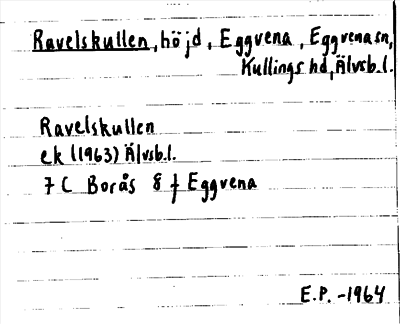 Ravelskullen, höjd, Eggvena, Eggvenasn,
Kullings hd, Älvsb.l.
Ravelskullen
ek (1963) Älvsb.l.
7 C Borås 8 f Eggvena
E.P. -1964